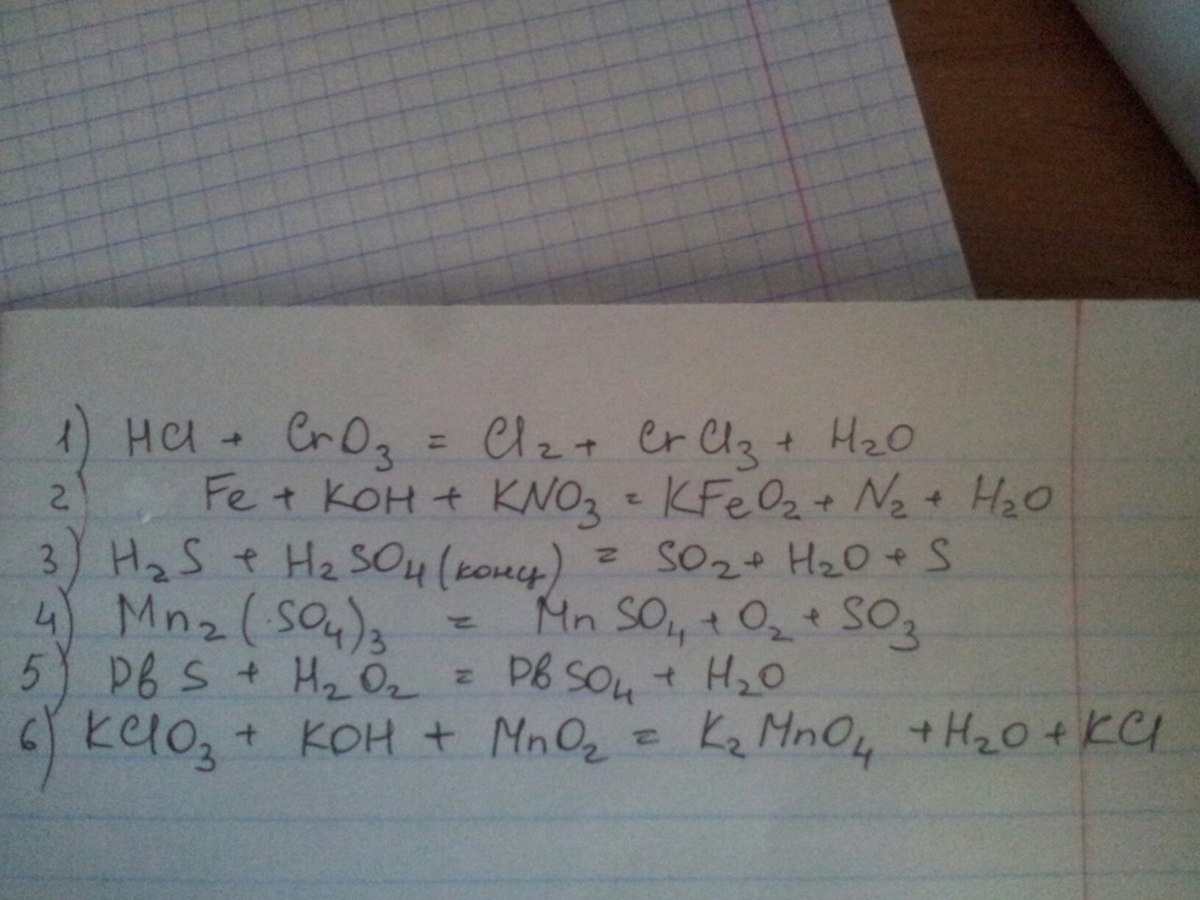 1) HCl + CrO₃ = Cl₂ + CrCl₃ + H₂O
2) Fe + KOH + KNO₃ = KFeO₂ + N₂ + H₂O
3) H₂S + H₂SO₄ (конц) = SO₂ + H₂O + S
4) Mn₂(SO₄)₃ = MnSO₄ + O₂ + SO₃
5) PbS + H₂O₂ = PbSO₄ + H₂O
6) KClO₃ + KOH + MnO₂ = K₂MnO₄ + H₂O + KCl